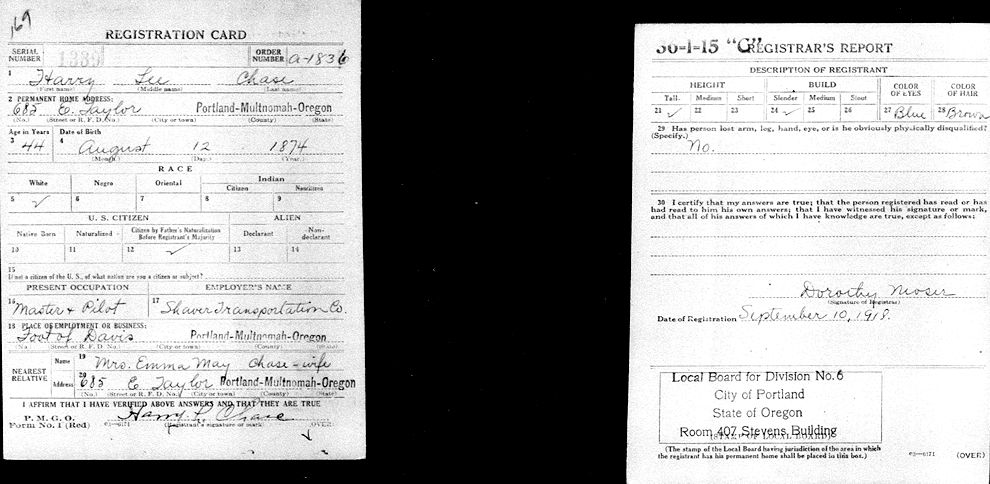 169
REGISTRATION CARD
SERIAL NUMBER 1339 ORDER NUMBER a-1836
1 Harry Lee Chase
(First name) (Middle name) (Last name)
2 PERMANENT HOME ADDRESS:
685 E. Taylor Portland-Multnomah-Oregon
(No.) (Street or R. F. D. No.) (City or town) (County) (State)
Age in Years Date of Birth
3 44 4 August 12 1874
(Month.) (Day.) (Year.)
RACE
White Negro Oriental Indian
Citizen Noncitizen
5 ✓ 6 7 8 9
U. S. CITIZEN ALIEN
Native Born Naturalized Citizen by Father's Naturalization Before Registrant's Majority Declarant Non-declarant
10 11 12 ✓ 13 14
15
If not a citizen of the U. S., of what nation are you a citizen or subject?
PRESENT OCCUPATION EMPLOYER'S NAME
16 Master & Pilot 17 Shaver Transportation Co.
18 PLACE OF EMPLOYMENT OR BUSINESS:
Foot of Davis Portland-Multnomah-Oregon
(No.) (Street or R. F. D. No.) (City or town) (County) (State)
NEAREST RELATIVE Name 19 Mrs. Emma May Chase - wife
Address 20 685 E Taylor Portland-Multnomah-Oregon
(No.) (Street or R. F. D. No.) (City or town) (County) (State)
I AFFIRM THAT I HAVE VERIFIED ABOVE ANSWERS AND THAT THEY ARE TRUE
P. M. G. O.
Form No. 1 (Red) 03—6171 Harry L. Chase
(Registrant's signature or mark) (OVER)
36-1-15 "C" REGISTRAR'S REPORT
DESCRIPTION OF REGISTRANT
HEIGHT BUILD COLOR OF EYES COLOR OF HAIR
Tall Medium Short Slender Medium Stout
21 ✓ 22 23 24 ✓ 25 26 27 Blue 28 Brown
29 Has person lost arm, leg, hand, eye, or is he obviously physically disqualified?
(Specify.) No.
30 I certify that my answers are true; that the person registered has read or has
had read to him his own answers; that I have witnessed his signature or mark,
and that all of his answers of which I have knowledge are true, except as follows:
Dorothy Moser
(Signature of Registrar)
Date of Registration September 10, 1918.
Local Board for Division No. 6
City of Portland
State of Oregon
Room 407, Stevens Building
(STAMP OF LOCAL BOARD)
(The stamp of the Local Board having jurisdiction of the area in which
the registrant has his permanent home shall be placed in this box.)
03—6171 (OVER)